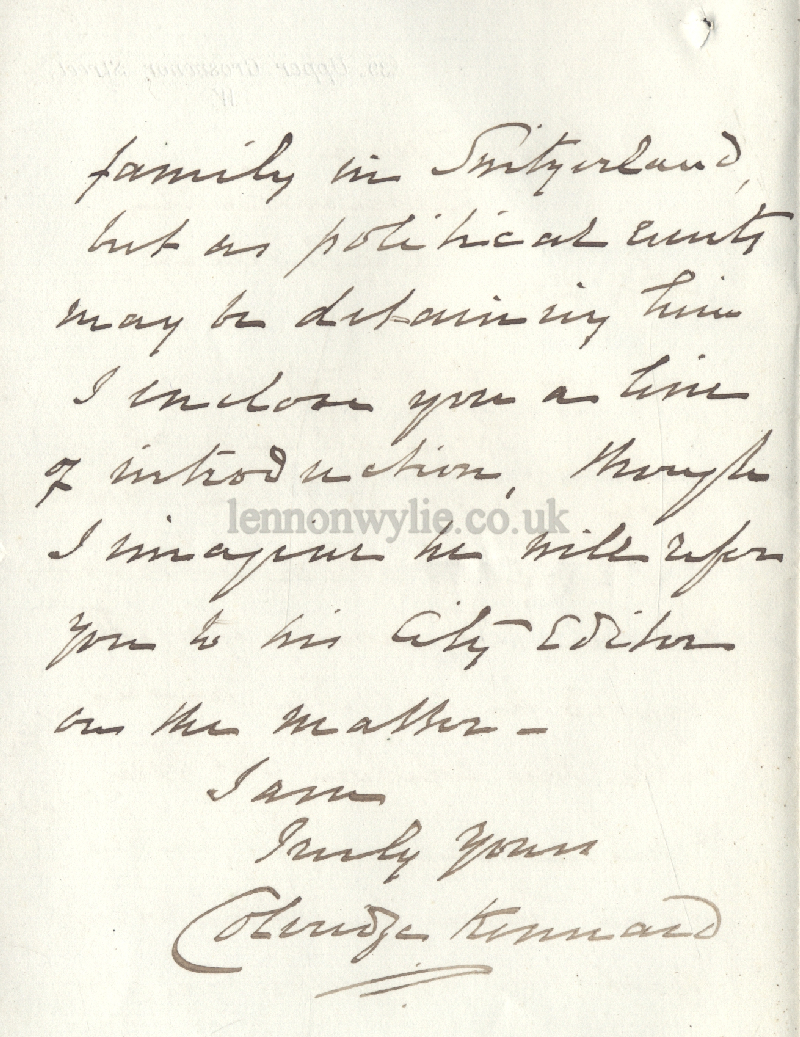 39, Upper Grosvenor Street,
W.
family in Switzerland,
but as political events
may be detaining him
I enclose you a line
of introduction, though
lennonwylie.co.uk
I imagine he will refer
you to his City Editor
on the matter -
I am
Truly Yours
Coleridge Kennard